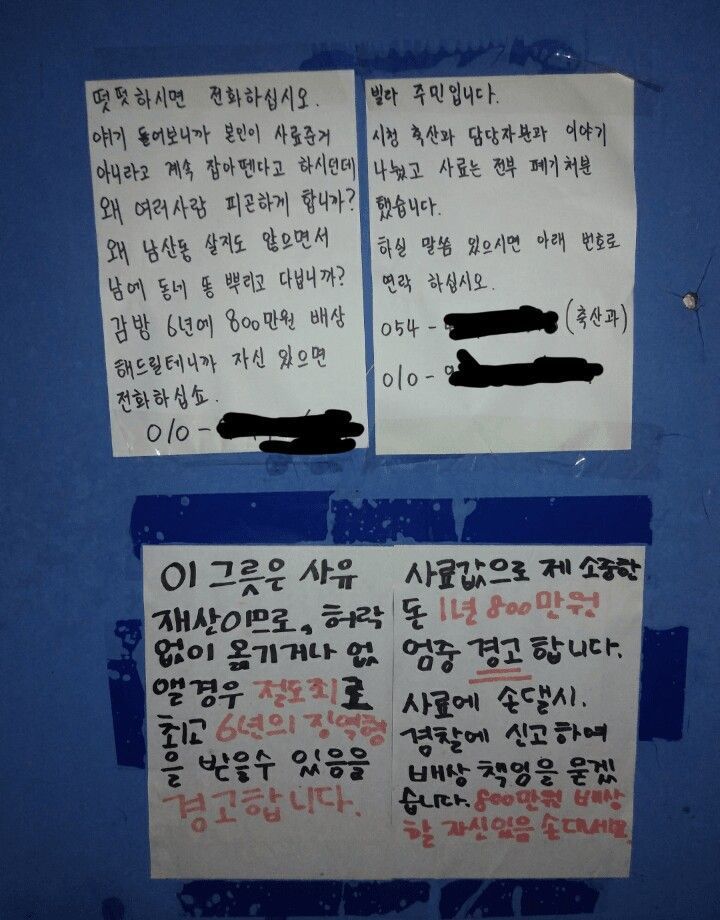 떳떳하시면 전화하십시오.
얘기 들어보니까 본인이 사료준거
아니라고 계속 잡아뗀다고 하시던데
왜 여러사람 피곤하게 합니까?
왜 남산동 살지도 않으면서
남에 동네 똥 뿌리고 다닙니까?
감방 6년에 800만원 배상
해드릴테니까 자신 있으면
전화하십쇼.
010-
빌라 주민입니다.
시청 축산과 담당자분과 이야기
나눴고 사료는 전부 폐기처분
했습니다.
하실 말씀 있으시면 아래 번호로
연락 하십시오.
054- (축산과)
010-
이 그릇은 사유
재산이므로, 허락
없이 옮기거나 없
앨경우 절도죄로
최고 6년의 징역형
을 받을수 있음을
경고합니다.
사료값으로 제 소중한
돈 1년 800만원
엄중 경고 합니다.
사료에 손댈시.
경찰에 신고하여
배상 책임을 묻겠
습니다. 800만원 배상
할 자신있음 손대세요